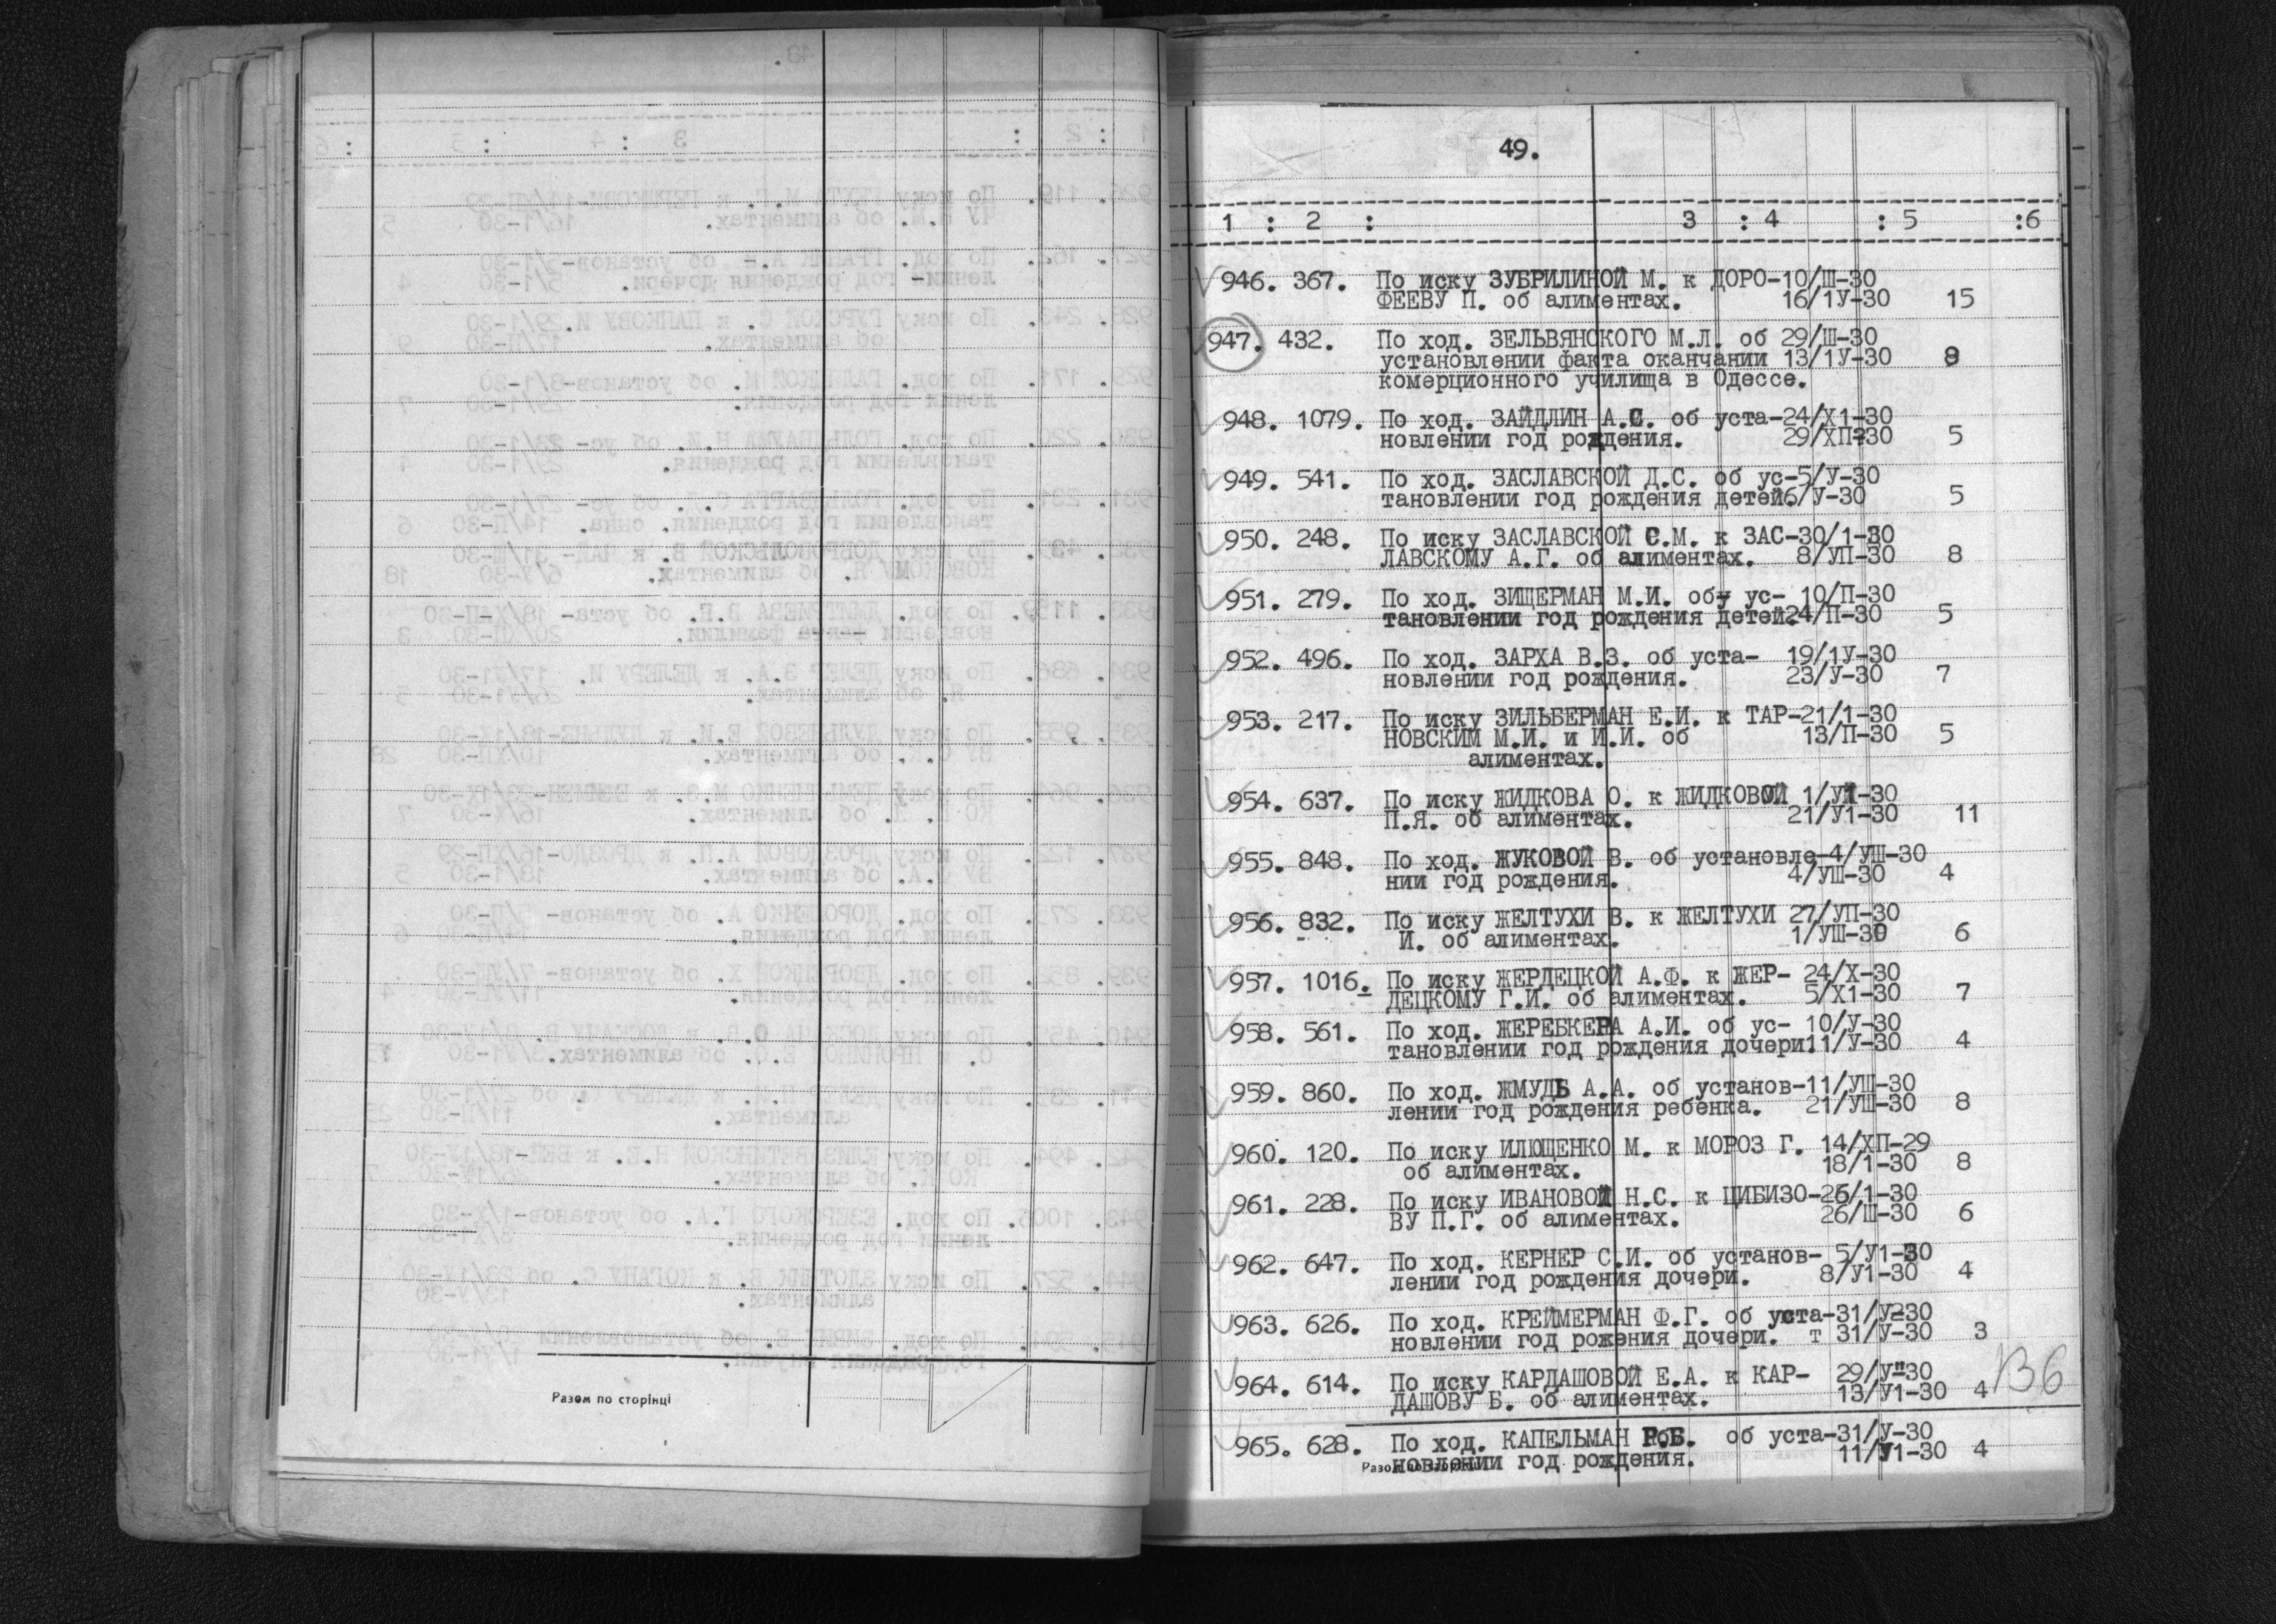 Разом по сторінці
49.
1 : 2 : 3 : 4 : 5 :6
946. 367. По иску ЗУБРИЛИНОЙ М. к ДОРО-10/Ш-30
ФЕЕВУ П. об алиментах. 16/1У-30 15
947. 432. По ход. ЗЕЛЬВЯНСКОГО М.Л. об 29/Ш-30
установлении факта оканчании 13/1У-30 8
комерционного училища в Одессе.
948. 1079. По ход. ЗАЙДЛИН А.С. об уста-24/Х1-30
новлении год рождения. 29/ХП-30 5
949. 541. По ход. ЗАСЛАВСКОЙ Д.С. об ус-5/У-30
тановлении год рождения детей.6/У-30 5
950. 248. По иску ЗАСЛАВСКОЙ С.М. к ЗАС-30/1-30
ЛАВСКОМУ А.Г. об алиментах. 8/УП-30 8
951. 279. По ход. ЗИЩЕРМАН М.И. об ус- 10/П-30
тановлении год рождения детей.24/П-30 5
952. 496. По ход. ЗАРХА В.З. об уста- 19/1У-30
новлении год рождения. 23/У-30 7
953. 217. По иску ЗИЛЬБЕРМАН Е.И. к ТАР-21/1-30
НОВСКИМ М.И. и И.И. об 13/П-30 5
алиментах.
954. 637. По иску ЖИДКОВА О. к ЖИДКОВОЙ 1/У1-30
П.Я. об алиментах. 21/У1-30 11
955. 848. По ход. ЖУКОВОЙ В. об установле-4/УШ-30
нии год рождения. 4/УШ-30 4
956. 832. По иску ЖЕЛТУХИ В. к ЖЕЛТУХИ 27/УП-30
И. об алиментах. 1/УШ-30 6
957. 1016. По иску ЖЕРДЕЦКОЙ А.Ф. к ЖЕР- 24/Х-30
ДЕЦКОМУ Г.И. об алиментах. 5/Х1-30 7
958. 561. По ход. ЖЕРЕБКЕРА А.И. об ус- 10/У-30
тановлении год рождения дочери.11/У-30 4
959. 860. По ход. ЖМУДЬ А.А. об установ-11/УШ-30
лении год рождения ребенка. 21/УШ-30 8
960. 120. По иску ИЛЮЩЕНКО М. к МОРОЗ Г. 14/ХП-29
об алиментах. 18/1-30 8
961. 228. По иску ИВАНОВОЙ Н.С. к ЦИБИЗО-26/1-30
ВУ П.Г. об алиментах. 26/Ш-30 6
962. 647. По ход. КЕРНЕР С.И. об установ- 5/У1-30
лении год рождения дочери. 8/У1-30 4
963. 626. По ход. КРЕЙМЕРМАН Ф.Г. об уста-31/У-30
новлении год рожения дочери. т 31/У-30 3
964. 614. По иску КАРДАШОВОЙ Е.А. к КАР- 29/У-30
ДАШОВУ Б. об алиментах. 13/У1-30 4
136
965. 628. По ход. КАПЕЛЬМАН Р.Б. об уста-31/У-30
новлении год рождения. 11/У1-30 4